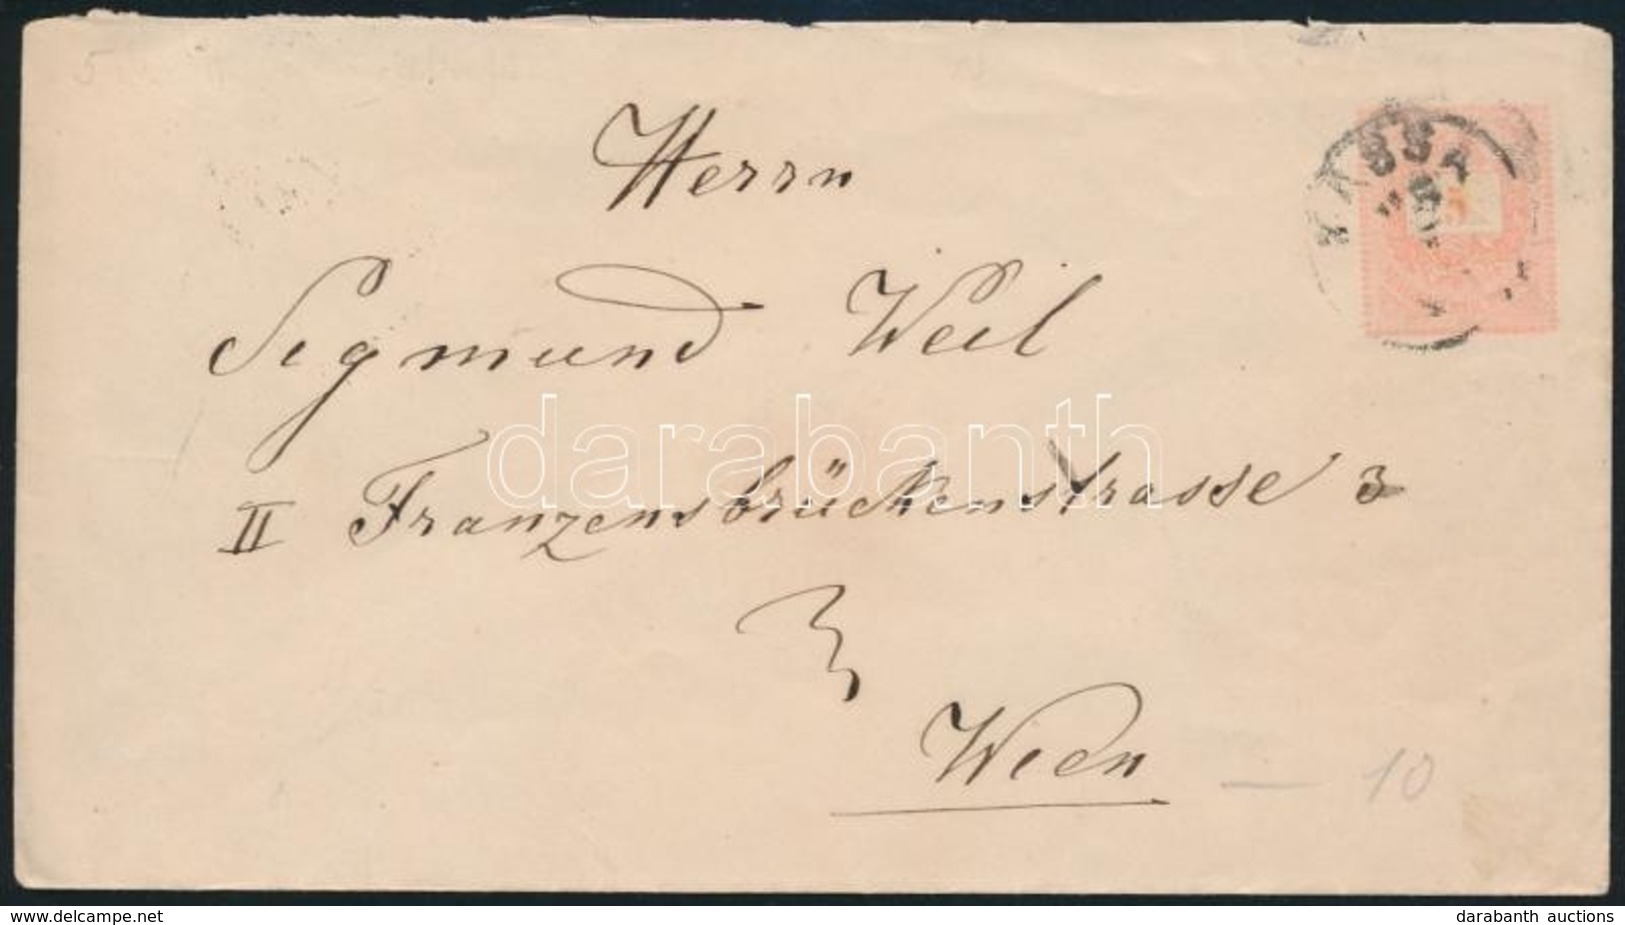 5
KASSA
Herrn
Sigmund Weil
II Franzensbrückenstrasse 3
Wien
10
darabanth
www.delcampe.net
darabanth auctions